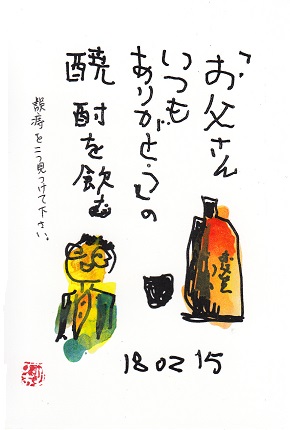 「お父さん
いつも
ありがとう」の
酎を飲む
誤痔を二つ見つけて下さい。
18 02 15